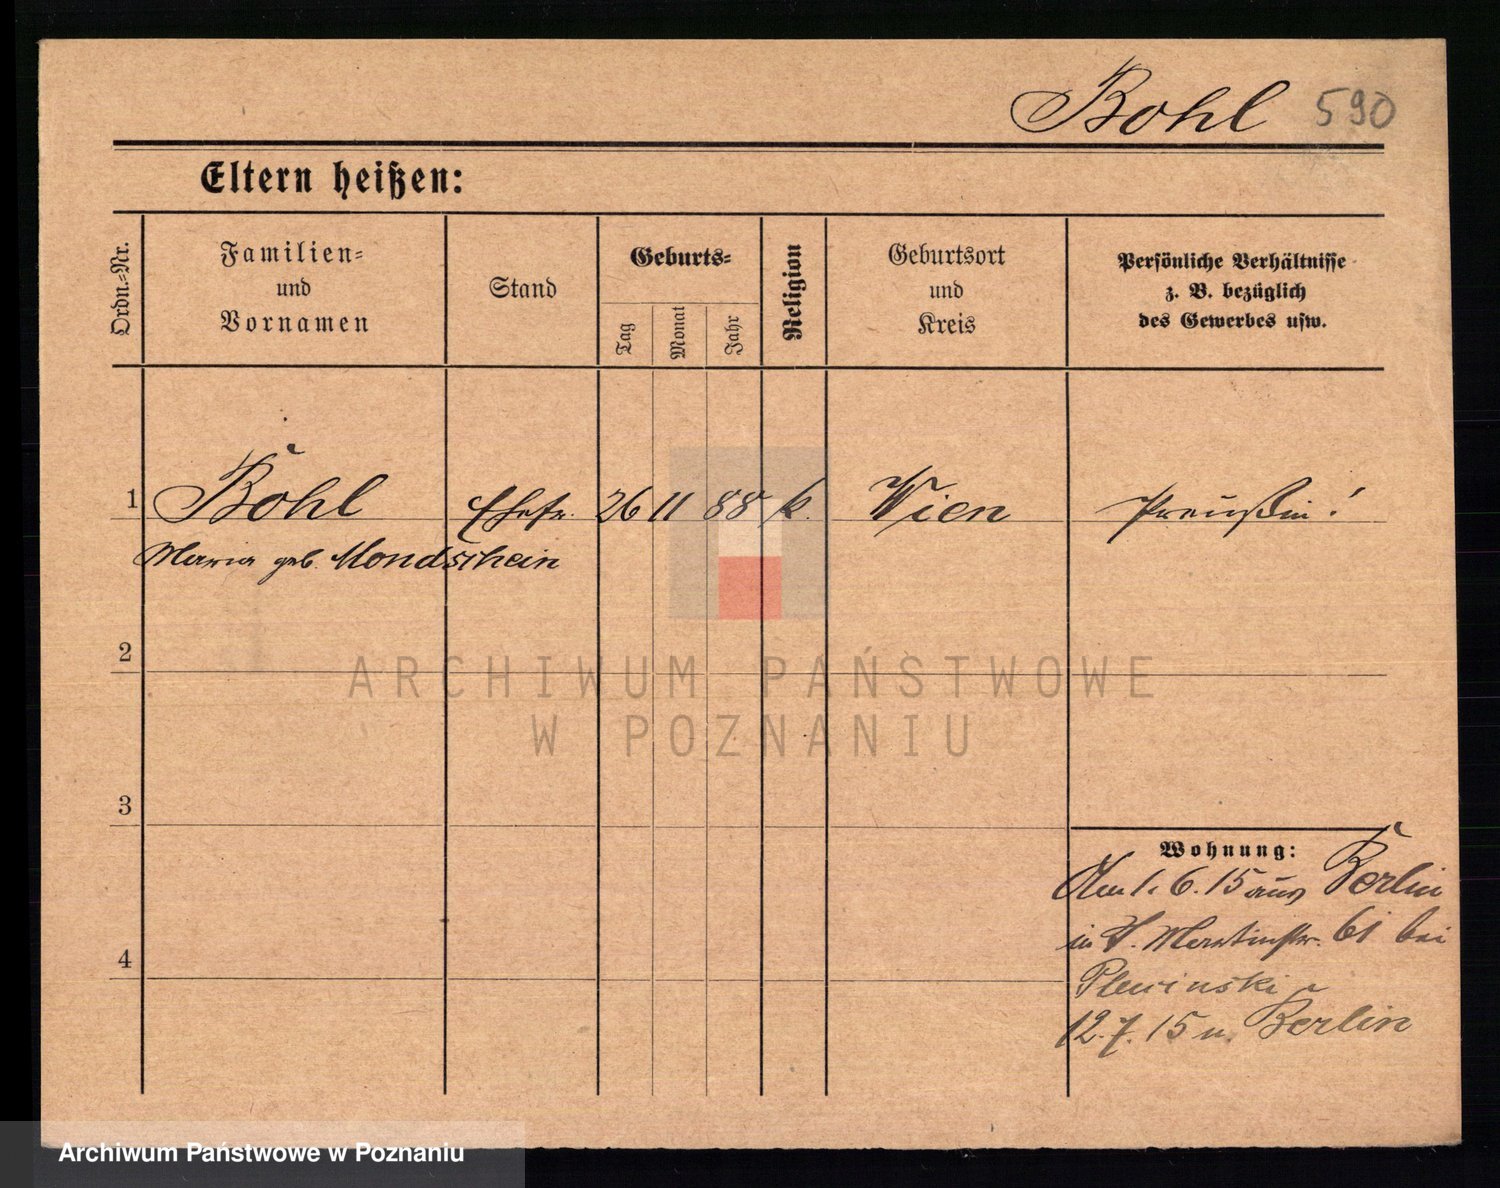 Bohl 590
Eltern heißen:
Ordn.-Nr.
Familien-
und
Vornamen
Stand
Geburts-
Tag
Monat
Jahr
Religion
Geburtsort
und
Kreis
Persönliche Verhältnisse
z. B. bezüglich
des Gewerbes usw.
1 Bohl Ehefr. 26 11 88 k. Wien Preußin!
Maria geb. Mondschein
2
ARCHIWUM PAŃSTWOWE
W POZNANIU
3
Wohnung:
Am 1. 6. 15 aus Berlin
in Martinstr. 61 bei
4
Plewinski
12. 7. 15 n. Berlin
Archiwum Państwowe w Poznaniu